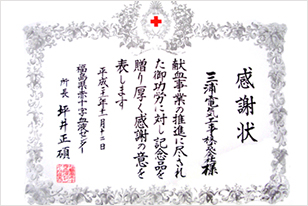 感謝状
三浦電気工事株式会社様
献血事業の推進に尽され
た御功労に対し記念品を
贈り厚く感謝の意を
表します
平成二十一年十一月十二日
福島県赤十字血液センター
所長 坪井正碩